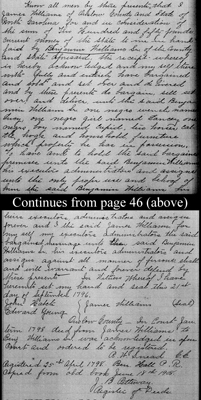 Know all men by these presents, that I
James Williams of Onslow County and State of
North Carolina for and in consideration of
the sum of Two Hundred and fifty pounds
current money of the State to me in hand
paid by Benjamin Williams Sr of the County
and State aforesaid, the receipt whereof
I do hereby acknowledge and my self there
with fully satisfied have bargained
and sold and set over and delivered
and by these presents do bargain sell set
over and deliver unto the said Benja
min Williams Sr one negro woman named
one negro girl named
negro boy named Cupid, two horses
all stock and house hold furniture
which property he has in possession
to have and to hold the said bargained
premises unto the said Benjamin Williams
his executors administrators and assigns
unto the only proper use and behoof of
him the said Benjamin Williams his
Continues from page 46 (above)
heirs executors administrators and assigns
forever and I the said James Williams for
my self my executors administrators the said
bargained premises unto the said Benjamin
Williams Sr his executors administrators and
assigns against all manner of persons shall
and will warrant and forever defend by
these presents. In Witness Whereof I have
hereunto set my hand and seal this 21st
day of September 1796.
John
James Williams (seal)
Edward Young
Onslow County - In Court Jan
term 1798 deed from James Williams to
Benj Williams Sr was acknowledged in open
Court and ordered to be registered.
C.C.
Registered 25th April 1798 Ben Hall P.R.
Copied from old book June 18th
J. B.
Register of Deeds